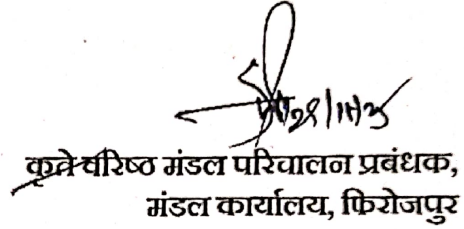 कृते वरिष्ठ मंडल परिचालन प्रबंधक,
मंडल कार्यालय, फिरोजपुर